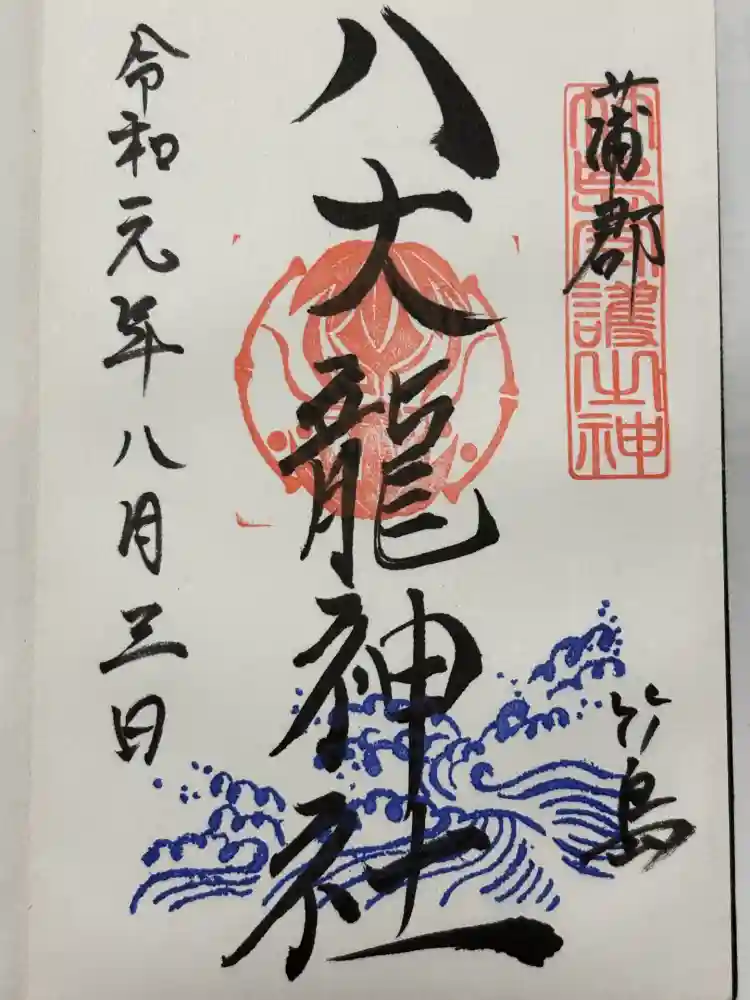 蒲郡
竹島守護之神
竹島
八大龍神社
令和元年八月三日